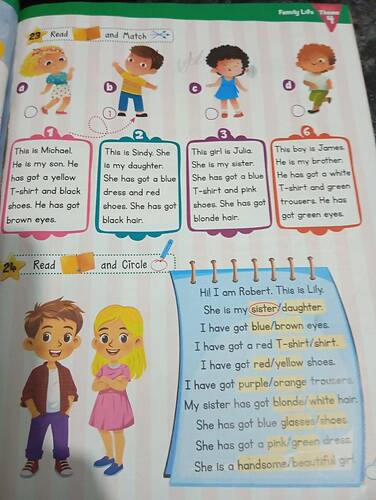 Family Life Theme 4
23 Read and Match
a
b
c
d
1
1
This is Michael.
He is my son. He
has got a yellow
T-shirt and black
shoes. He has got
brown eyes.
2
This is Sindy. She
is my daughter.
She has got a blue
dress and red
shoes. She has got
black hair.
3
This girl is Julia.
She is my sister.
She has got a blue
T-shirt and pink
shoes. She has got
blonde hair.
This boy is James.
He is my brother.
He has got a white
T-shirt and green
trousers. He has
got green eyes.
24 Read and Circle
Hi! I am Robert. This is Lily.
She is my sister/daughter.
I have got blue/brown eyes.
I have got a red T-shirt/shirt.
I have got red/yellow shoes.
I have got purple/orange trousers.
My sister has got blonde/white hair.
She has got blue glasses/shoes.
She has got a pink/green dress.
She is a handsome/beautiful girl.